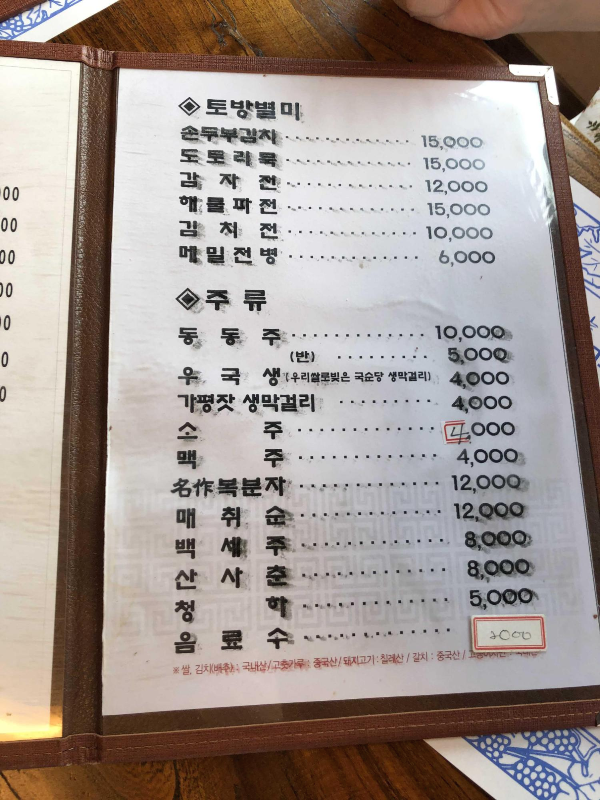 000
00
00
00
0
0
0
◈토방별미
손두부김치 15,000
도토리묵 15,000
감자전 12,000
해물파전 15,000
김치전 10,000
메밀전병 6,000
◈주류
동동주 10,000
(반) 5,000
우국생(우리쌀로빚은 국순당 생막걸리) 4,000
가평잣 생막걸리 4,000
소주 4,000
맥주 4,000
名作복분자 12,000
매취순 12,000
백세주 8,000
산사춘 8,000
청하 5,000
음료수 2000
※쌀, 김치(배추) : 국내산/고춧가루 : 중국산/돼지고기 : 칠레산 / 갈치 : 중국산 /